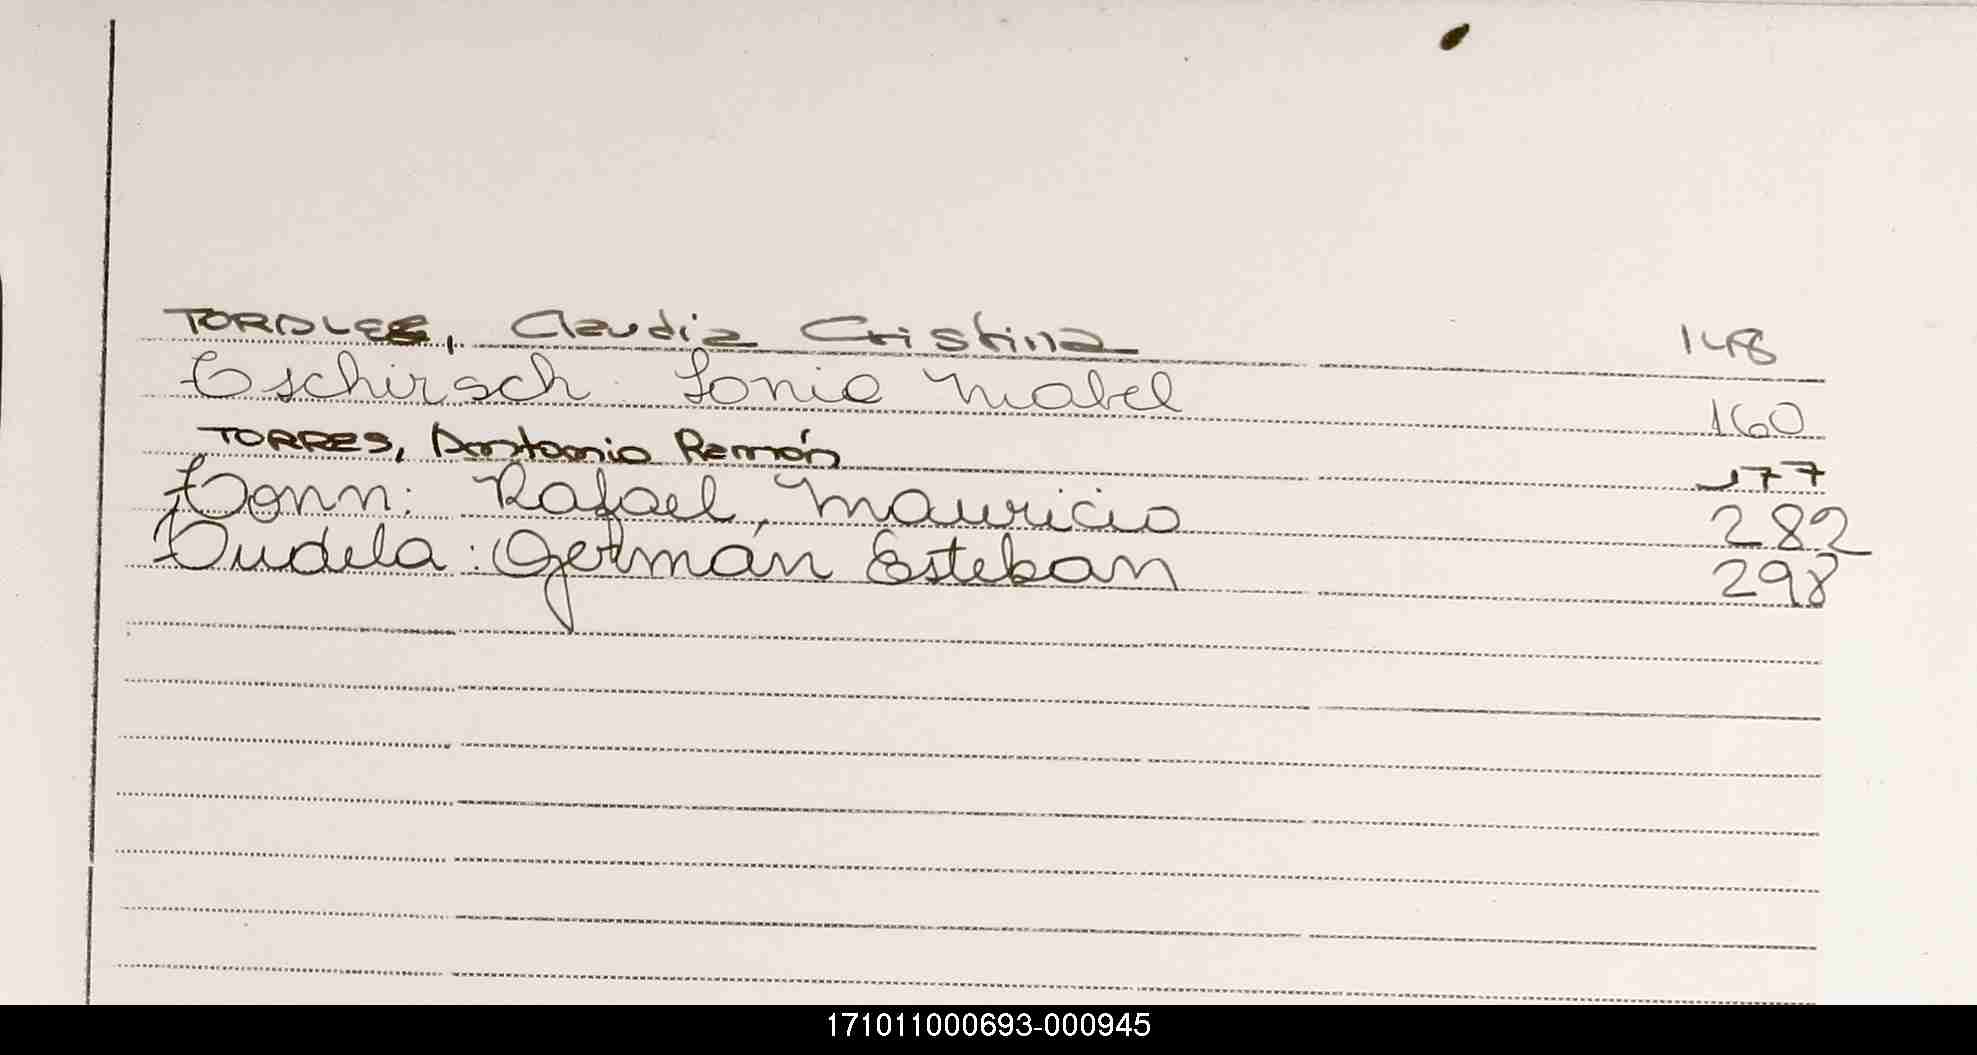 TORALES, Claudia Cristina 148
Tschirsch: Sonia Mabel 160
TORRES, Antonio Ramón 177
Tonn: Rafael, Mauricio 282
Tudela: Germán Esteban 298
171011000693-000945